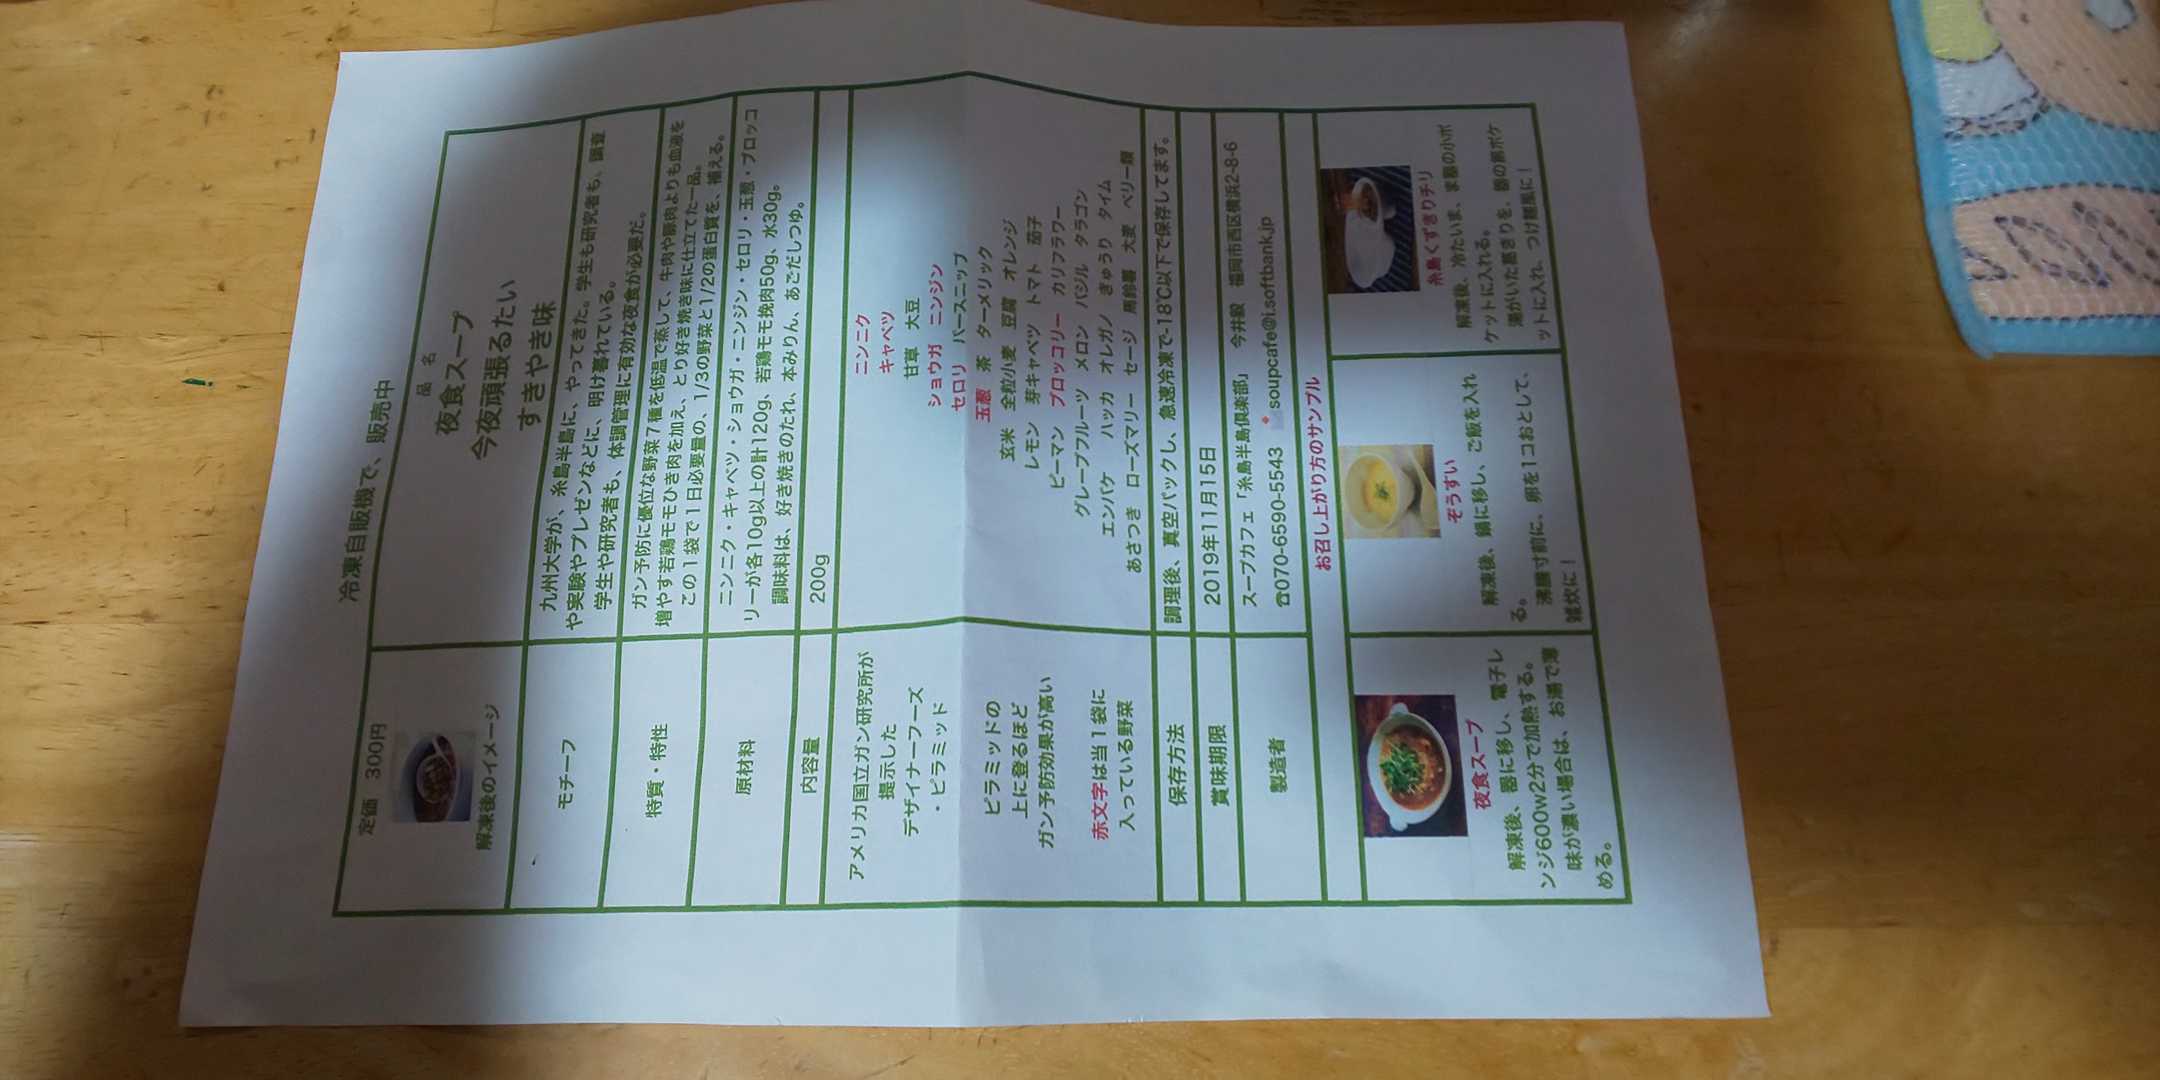 冷凍自販機で、販売中
定価 300円
解凍後のイメージ
品 名
夜食スープ
今夜頑張るたい
すきやき味
モチーフ
九州大学が、糸島半島に、やってきた。学生も研究者も、調査
や実験やプレゼンなどに、明け暮れている。
学生や研究者も、体調管理に有効な夜食が必要だ。
特質・特性
ガン予防に優位な野菜7種を低温で蒸して、牛肉や豚肉よりも血液を
増やす若鶏モモひき肉を加え、とり好き焼き味に仕立てた一品。
この1袋で1日必要量の、1/3の野菜と1/2の蛋白質を、補える。
原材料
ニンニク・キャベツ・ショウガ・ニンジン・セロリ・玉葱・ブロッコ
リーが各10g以上の計120g、若鶏モモ挽肉50g、水30g。
調味料は、好き焼きのたれ、本みりん、あごだしつゆ。
内容量
200g
アメリカ国立ガン研究所が
提示した
デザイナーフーズ
・ピラミッド
ピラミッドの
上に登るほど
ガン予防効果が高い
赤文字は当1袋に
入っている野菜
ニンニク
キャベツ
甘草 大豆
ショウガ ニンジン
セロリ パースニップ
玉葱 茶 ターメリック
玄米 全粒小麦 豆腐 オレンジ
レモン 芽キャベツ トマト 茄子
ピーマン ブロッコリー カリフラワー
グレープフルーツ メロン バジル タラゴン
エンバケ ハッカ オレガノ きゅうり タイム
あさつき ローズマリー セージ 馬鈴薯 大麦 ベリー類
保存方法
調理後、真空パックし、急速冷凍で-18℃以下で保存してます。
賞味期限
2019年11月15日
製造者
スープカフェ「糸島半島倶楽部」 今井毅 福岡市西区横浜2-8-6
☎070-6590-5543 soupcafe@i.softbank.jp
お召し上がり方のサンプル
夜食スープ
解凍後、器に移し、電子レ
ンジ600w2分で加熱する。
味が濃い場合は、お湯で薄
める。
ぞうすい
解凍後、鍋に移し、ご飯を入れ
る。
沸騰寸前に、卵を1コおとして、
雑炊に！
糸島くずきりチリ
解凍後、冷たいま、ま器の小ポ
ケットに入れる。
湯がいた葛きりを、器の大ポケ
ットに入れ、つけ麺風に！